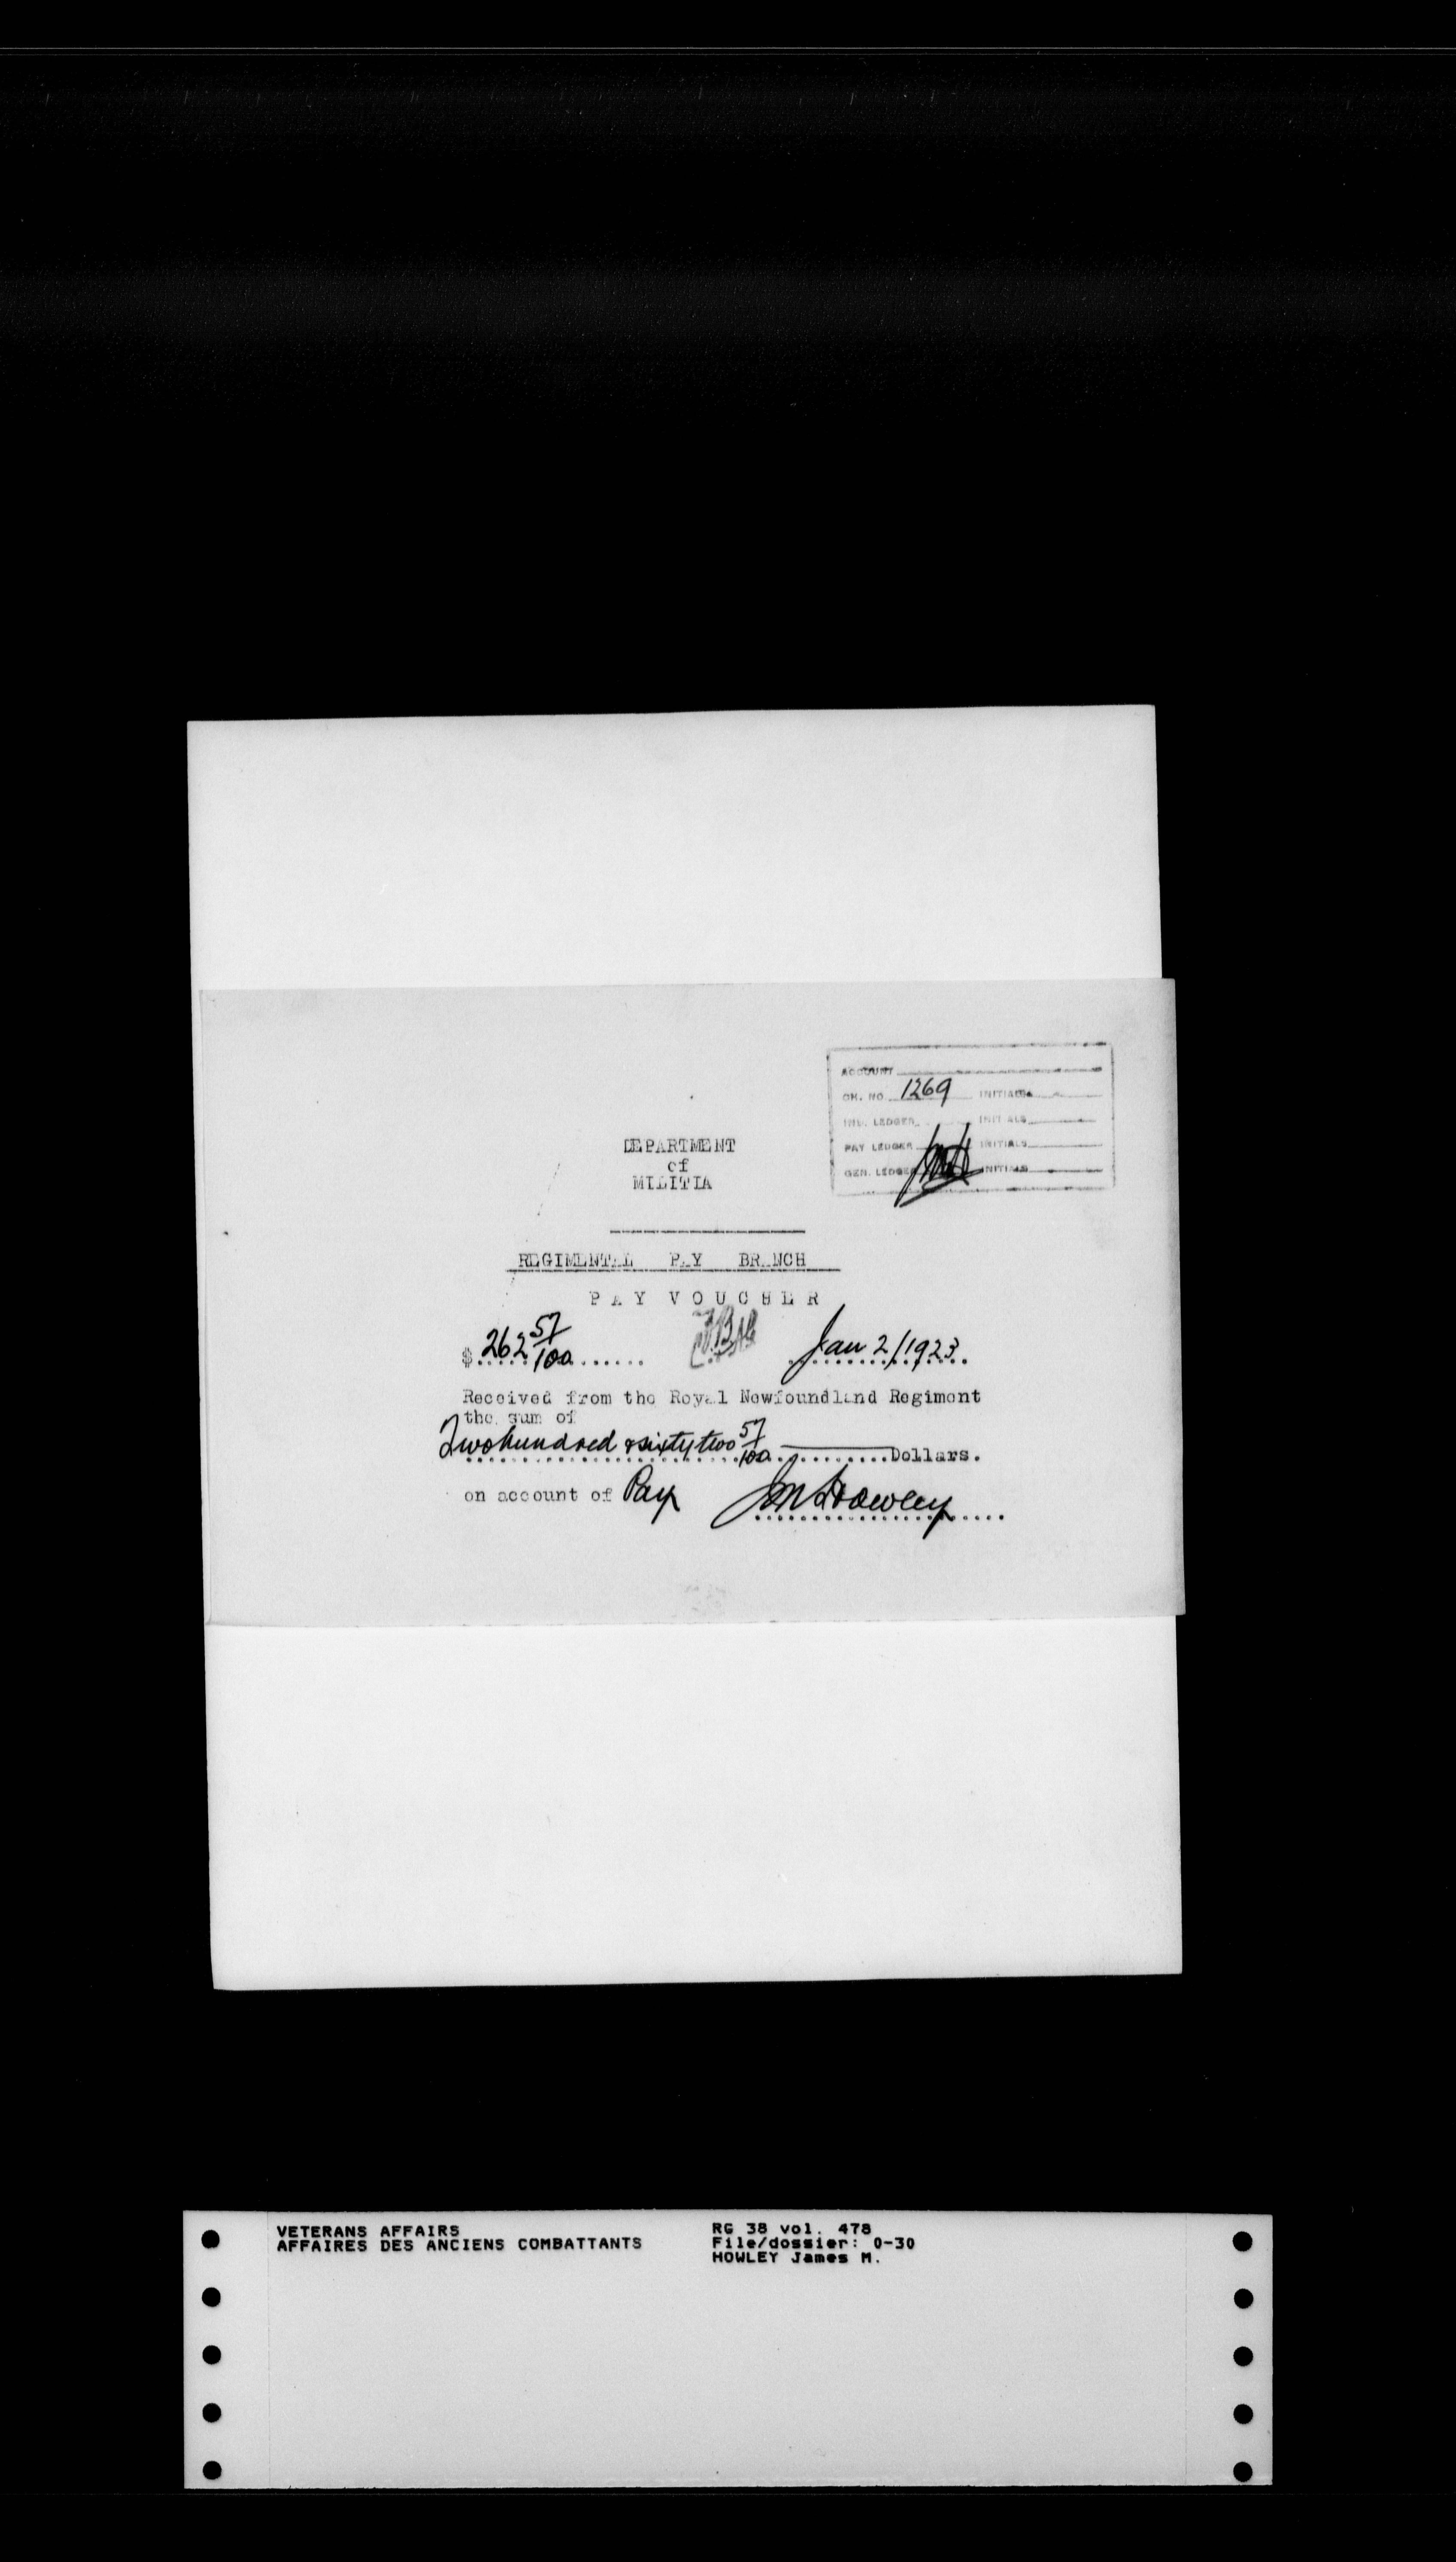 ACCOUNT
CH. NO. 1269 INITIALS
INV. LEDGER INITIALS
PAY LEDGER INITIALS
GEN. LEDGER INITIALS
DEPARTMENT
of
MILITIA
REGIMENTAL PAY BRANCH
PAY VOUCHER
$ 262 57/100 Jan 2/1923
Received from the Royal Newfoundland Regiment
the sum of
Two hundred & sixty two 57/100 Dollars.
on account of Pay J M Howley
VETERANS AFFAIRS RG 38 vol. 478
AFFAIRES DES ANCIENS COMBATTANTS File/dossier: 0-30
HOWLEY James M.